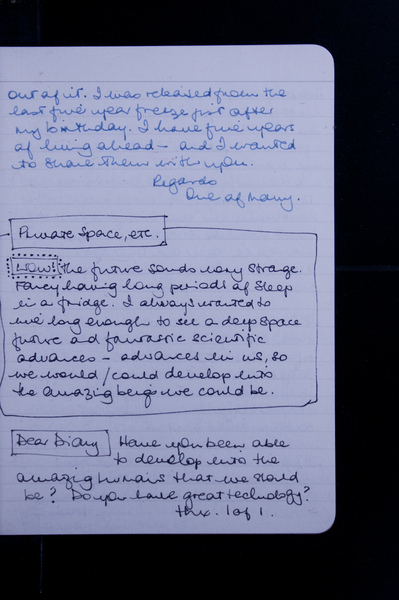 out of it. I was released from the
last five year freeze just after
my birthday. I have five years
of living ahead – and I wanted
to share them with you.
Regards
One of many.
Private Space, etc.
WOW! The future sounds very strange.
Fancy having long periods of sleep
in a fridge. I always wanted to
live long enough to see a deep space
future and fantastic scientific
advances – advances in us, so
we would/could develop into
the amazing beings we could be.
Dear Diary Have you been able
to develop into the
amazing humans that we should
be? Do you have great technology?
thx. 1 of 1.